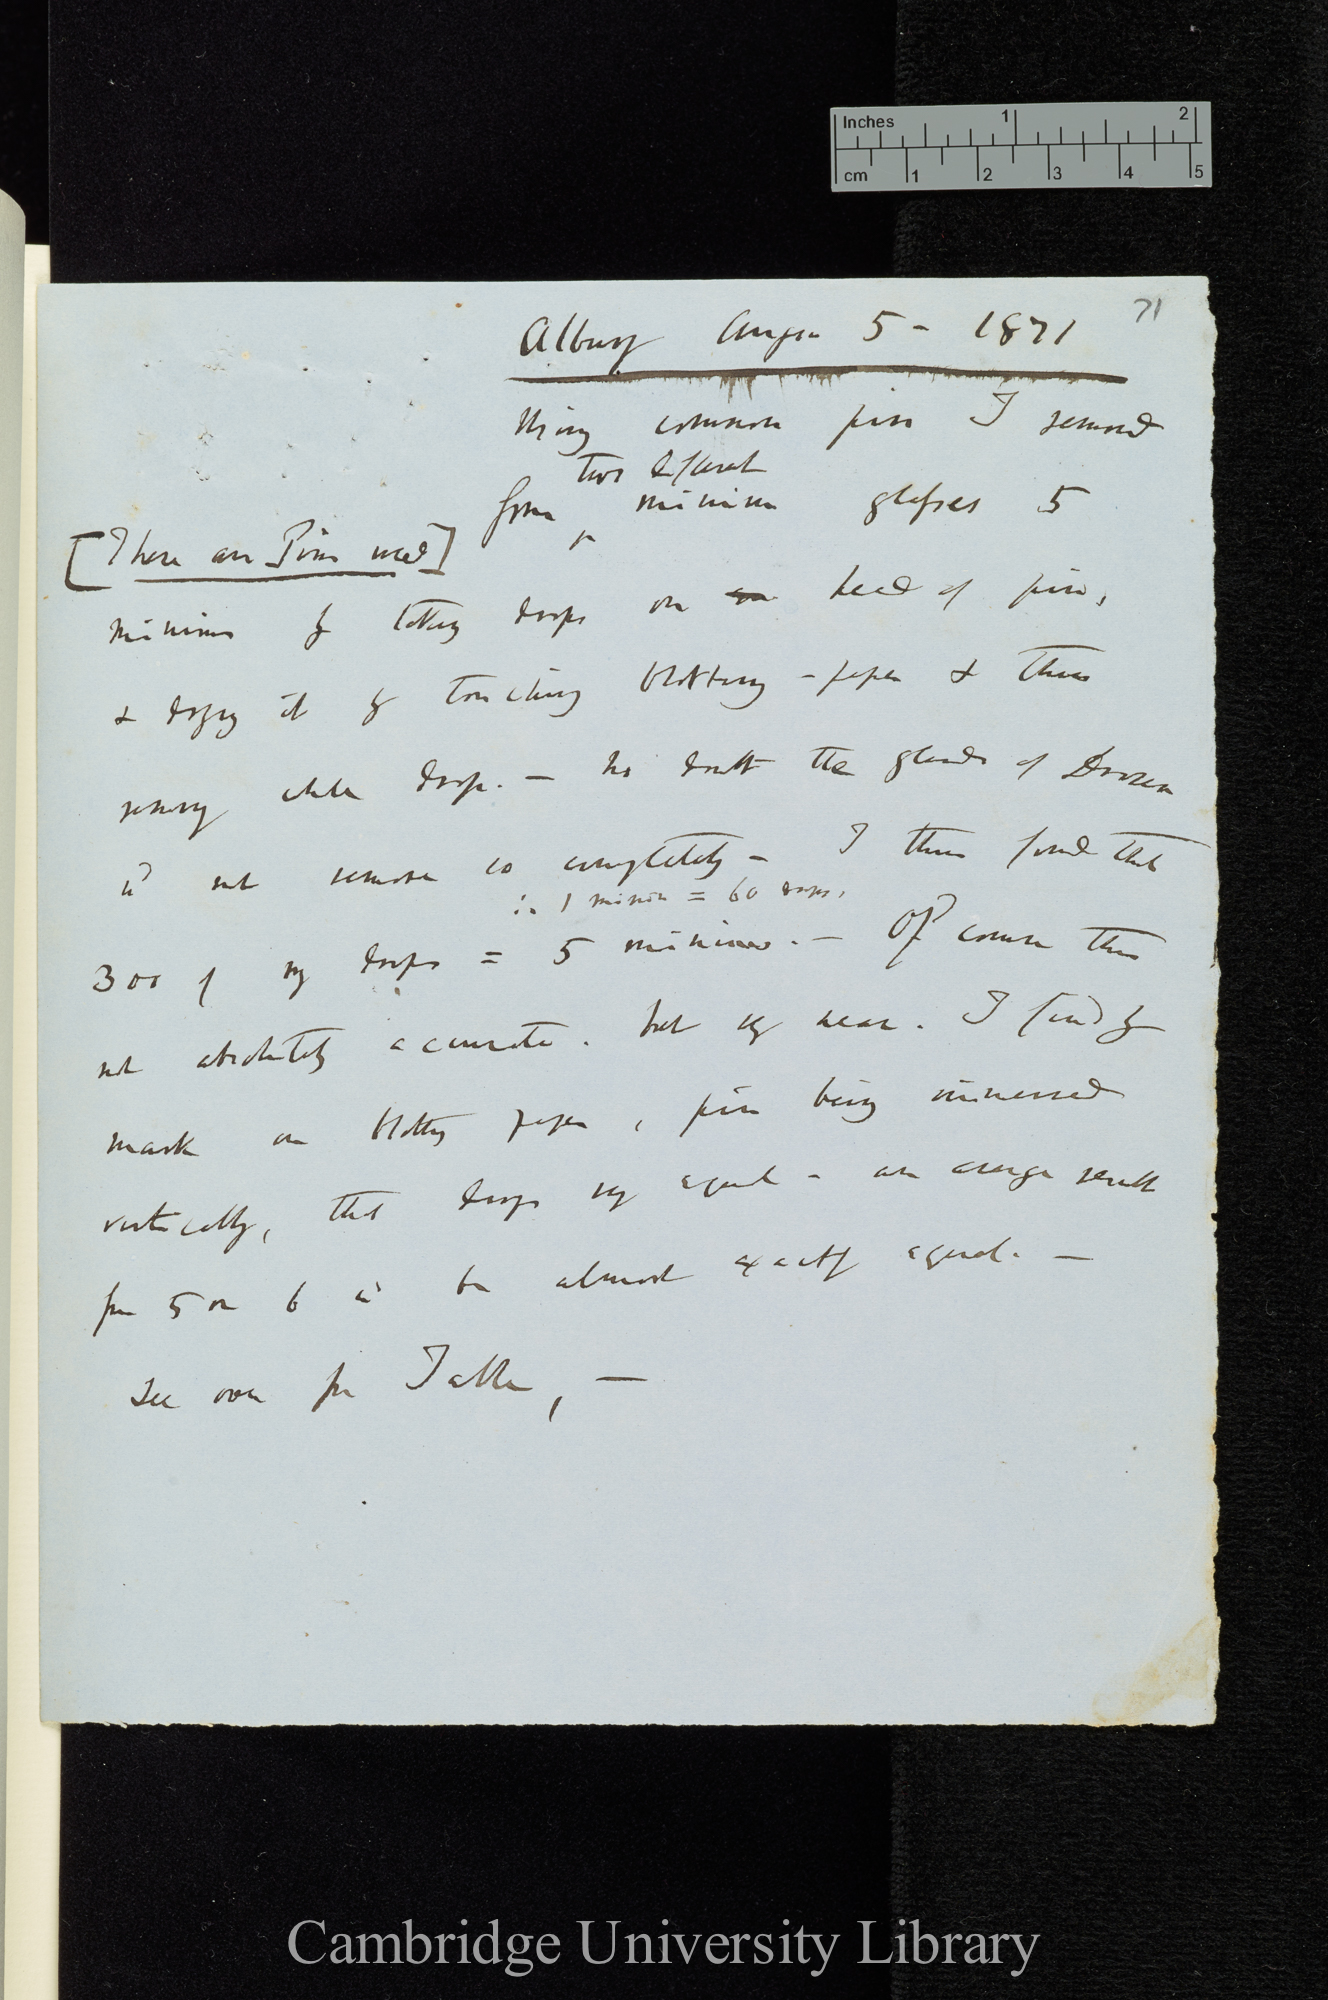 Inches 1 2
cm 1 2 3 4 5
71
Albury August 5 - 1871
Using common pin I removed
two different
from minim glasses 5
[These are Pins used]
minims by taking drops on head of pin,
& drying it by touching blotting-paper & then
removing another drop. — No doubt the glands of Drosera
wd not remove so completely — I thus found that
∴ 1 minim = 60 drops.
300 of my drops = 5 minims. — Of course this
not absolutely accurate. but very near. I find by
mark on blotting paper, pin being immersed
vertically, that drops very equal - an average result
for 5 or 6 wd be almost exactly equal. —
See over for Table, —
Cambridge University Library